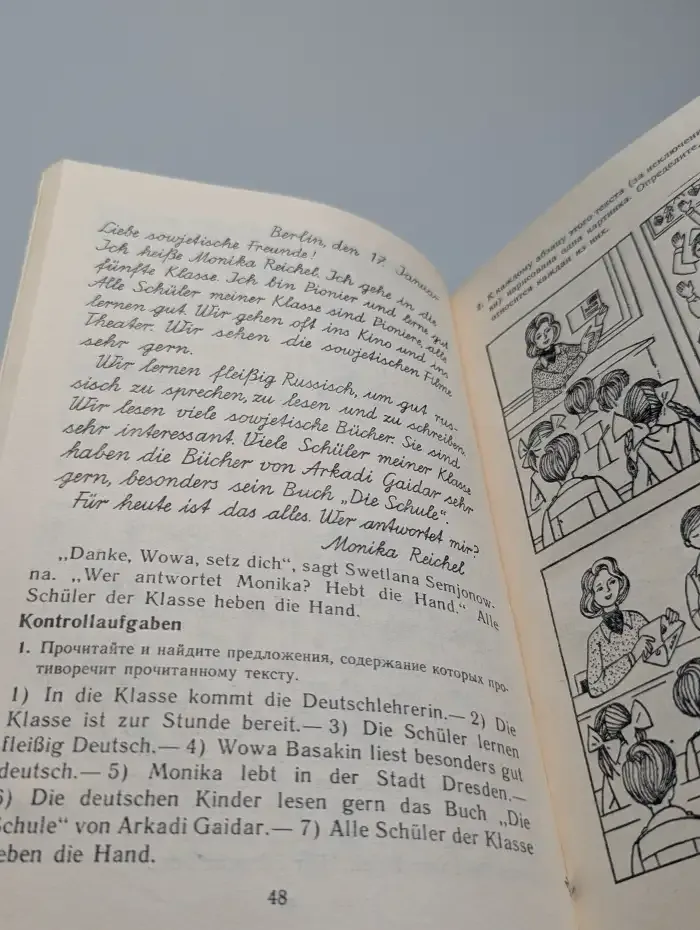 Berlin, den 17. Januar
Liebe sowjetische Freunde!
Ich heiße Monika Reichel. Ich gehe in die
fünfte Klasse. Ich bin Pionier und lerne gut.
Alle Schüler meiner Klasse sind Pioniere, alle
lernen gut. Wir gehen oft ins Kino und ins
Theater. Wir sehen die sowjetischen Filme
sehr gern.
Wir lernen fleißig Russisch, um gut rus-
sisch zu sprechen, zu lesen und zu schreiben.
Wir lesen viele sowjetische Bücher. Sie sind
sehr interessant. Viele Schüler meiner Klasse
haben die Bücher von Arkadi Gaidar sehr
gern, besonders sein Buch „Die Schule“.
Für heute ist das alles. Wer antwortet mir?
Monika Reichel
„Danke, Wowa, setz dich“, sagt Swetlana Semjonow-
na. „Wer antwortet Monika? Hebt die Hand.“ Alle
Schüler der Klasse heben die Hand.
Kontrollaufgaben
1. Прочитайте и найдите предложения, содержание которых про-
тиворечит прочитанному тексту.
1) In die Klasse kommt die Deutschlehrerin.— 2) Die
Klasse ist zur Stunde bereit.— 3) Die Schüler lernen
fleißig Deutsch.— 4) Wowa Basakin liest besonders gut
deutsch.— 5) Monika lebt in der Stadt Dresden.—
6) Die deutschen Kinder lesen gern das Buch „Die
Schule“ von Arkadi Gaidar.— 7) Alle Schüler der Klasse
eben die Hand.
48
2. К каждому абзацу этого текста (за исключени
ки) нарисована одна картинка. Определите,
относится каждая из них.